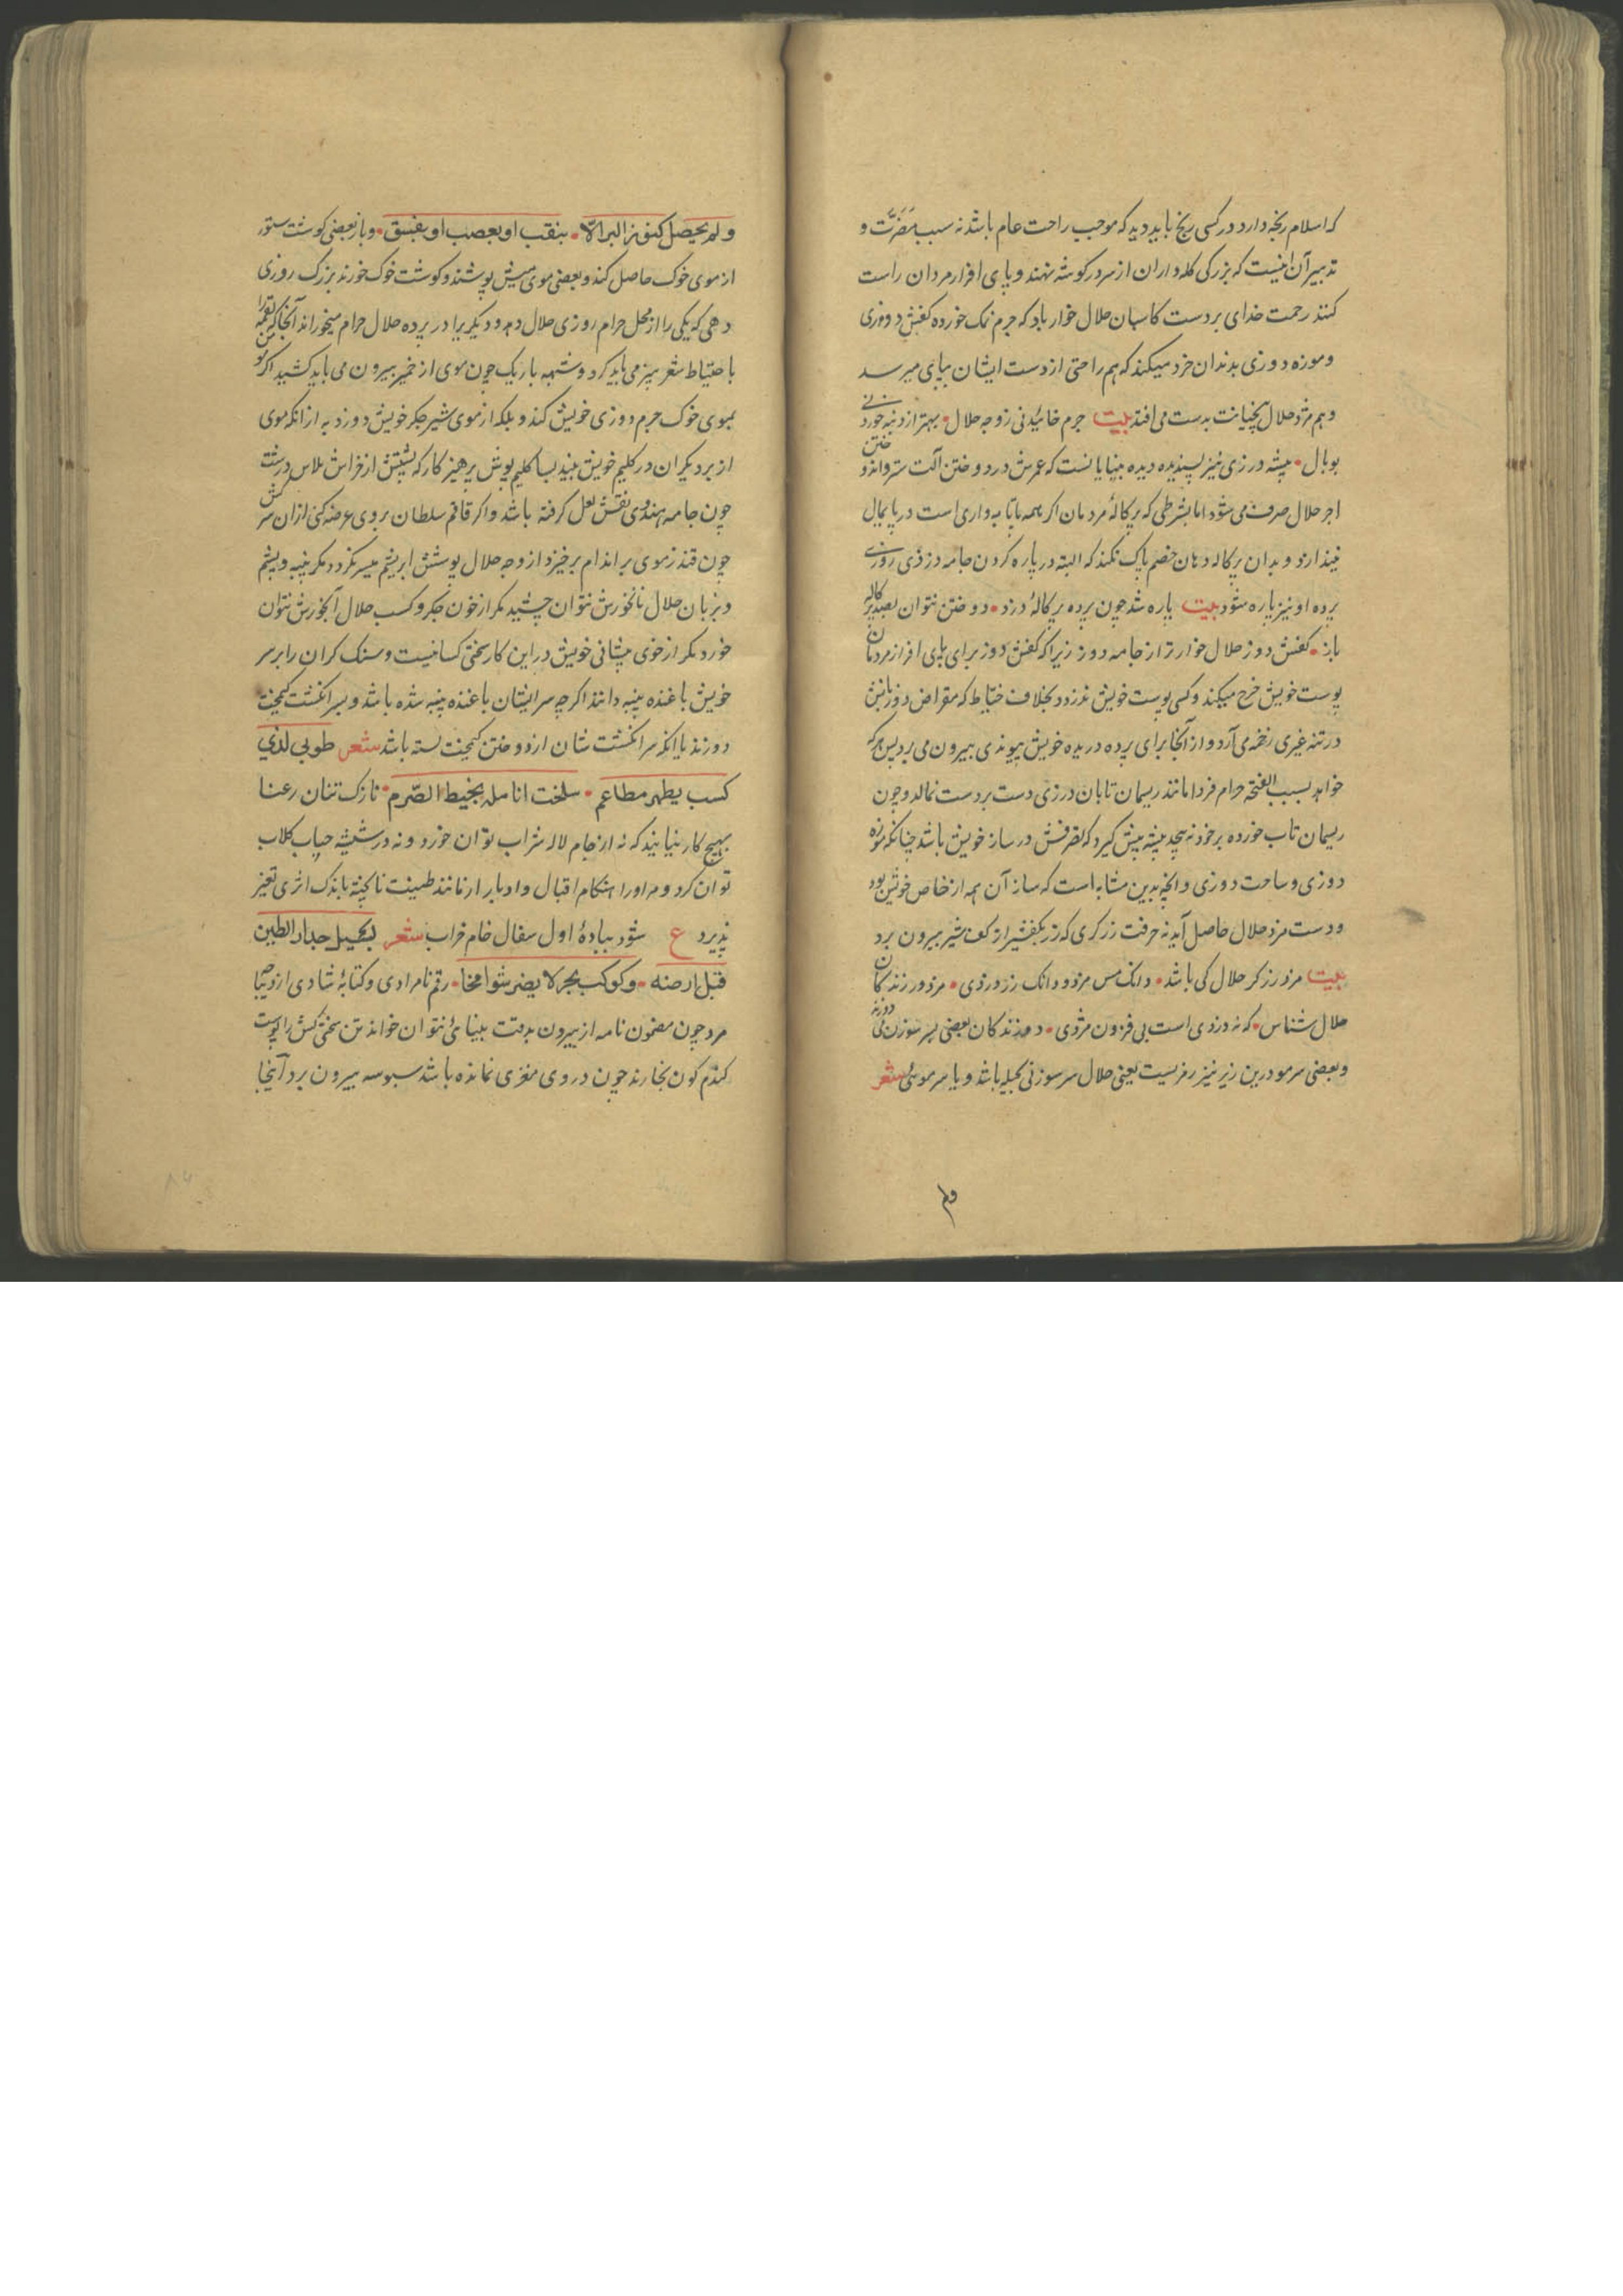 که اسلام رنجه دارد در کسی رنج باید دید که موجب راحت عام باشد نه سبب مضرّت و
تدبیر آن اینست که بزرکی کله داران از سر در کوشه نهند و پای افزار مردان راست
کنند رحمت خدای بر دست کاسبان حلال خوار باد که چرم نمک خورده کفش دوزی
و موزه دوزی بدندان خرد میکنند که هم راحتی از دست ایشان بپای میرسد
و هم مزد حلال بیخیانت بدست می افتد بیت چرم خائیدنی ز وجه حلال • بهتر از دنبه خوردنی
بوبال • پیشه درزی نیز پسندیده دیده بینایانست که عمرش در دوختن آلت ستر و اندوختن
اجر حلال صرف می شود اما بشرطی که پرکالهٔ مردمان اکر همه پاتابه واری است در پایمال
نیندازد و بدان پرکاله دهان خصم پاک نکند که البته در پاره کردن جامه دزدی روزی
پرده او نیز پاره شود بیت پاره شد چون پرده پرکالهٔ درزد • دوختن نتوان بصد پرکاله
باز • کفش دوز حلال خوارتر از جامه دوز زیراکه کفش دوز برای پای افزار مردمان
پوست خویش خرج میکند و کسی پوست خویش ندزدد بخلاف خیاط که مقراض دو زبانش
در تنه غیری رخنه می آرد و از آنجا برای پرده دریده خویش پیوندی بیرون می برد پس هر که
خواهد بسبب الفخته حرام فردا مانند ریسمان تابان درزی دست بر دست نمالد و چون
ریسمان تاب خورده بر خود نپیچد پیشه پیش کیرد که تصرفش در ساز خویش باشد چنانکه موزه
دوزی و ساخت دوزی و انچه بدین مشابه است که ساز آن همه از خاص خویش بود
و دست مزد حلال حاصل آید نه حرفت زرکری که زر بکفشیر از کف شیر بیرون برد
بیت مزد زرکر حلال کی باشد • دانک مس مزد و دانک زر دزدی • مزد درزندکان
حلال شناس • که نه دزدی است بی فزون مزدی • دوزندکان بعضی بسر سوزن می دوزند
و بعضی سر مو درین زیر نیز رمزیست یعنی حلال سر سوزنی بحیله باشد و یا سر موئی شعر
ولم یحصل کنوز البر الاّ • بنقب او بعصب او بفسق • و باز بعضی کوشت ستور
از موی خوک حاصل کند و بعضی موی میش پوشند و کوشت خوک خورند بزرک روزی
دهی که یکی را از محل حرام روزی حلال دهد و دیکری را در پرده حلال حرام میخوراند آنجا که
با حتیاط شعر بیز می باید کرد و شبهه باریک چون موی از خمیر بیرون می باید کشید اکر تو
بموی خوک چرم دوزی خویش کند و بلکه از موی شیر جکر خویش دوزد به از انکه موی
از برد یکران در کلیم خویش بیند بسا کلیم پوش پرهیزکار که پشتش از خراش پلاس درشت
چون جامه هندوی نقش لعل کرفته باشد و اکر قاقم سلطان بروی عرضه کنی ازان سرکش
چون قندز موی بر اندام برخیزد از وجه حلال پوشش ابریشم میسر نکردد مکر پنبه و پشم
و بزبان حلال نانخورش نتوان چشید مکر از خون جکر و کسب حلال آبخورش نتوان
خورد مکر از خوی پیشانی خویش در این کار سختی کسانیست و سنک کران را بر سر
خویش باغنده پنبه دانند اکر چه سر ایشان باغنده پنبه شده باشد و بسر انکشت کیمخت
دوزند با انکه سر انکشت شان از دوختن کیمخت بسته باشد شعر طوبی لذی
کسب یطهر مطاعم • سلخت انامله بخیط الصّرم • نازک تنان رعنا
بهیچ کار نیایند که نه از جام لاله شراب توان خورد و نه در شیشه حباب کلاب
توان کرد و مر او را هنکام اقبال و ادبار از مانند طینت ناپخته باندک اثری تغیر
پذیرد ع شود بباده اول سفال خام خراب شعر لبحیل جدار الطین
قبل ارضه • وکوکب بجر لا یضر شوامخا • رقم نامرادی و کتابهٔ شادی از دیبا
مرد چون مضمون نامه از بیرون بدقت بینائی نتوان خواند تن سختی کش را پوست
کندم کون بخارند چون در وی مغزی نمانده باشد سبوسه بیرون برد آنجا